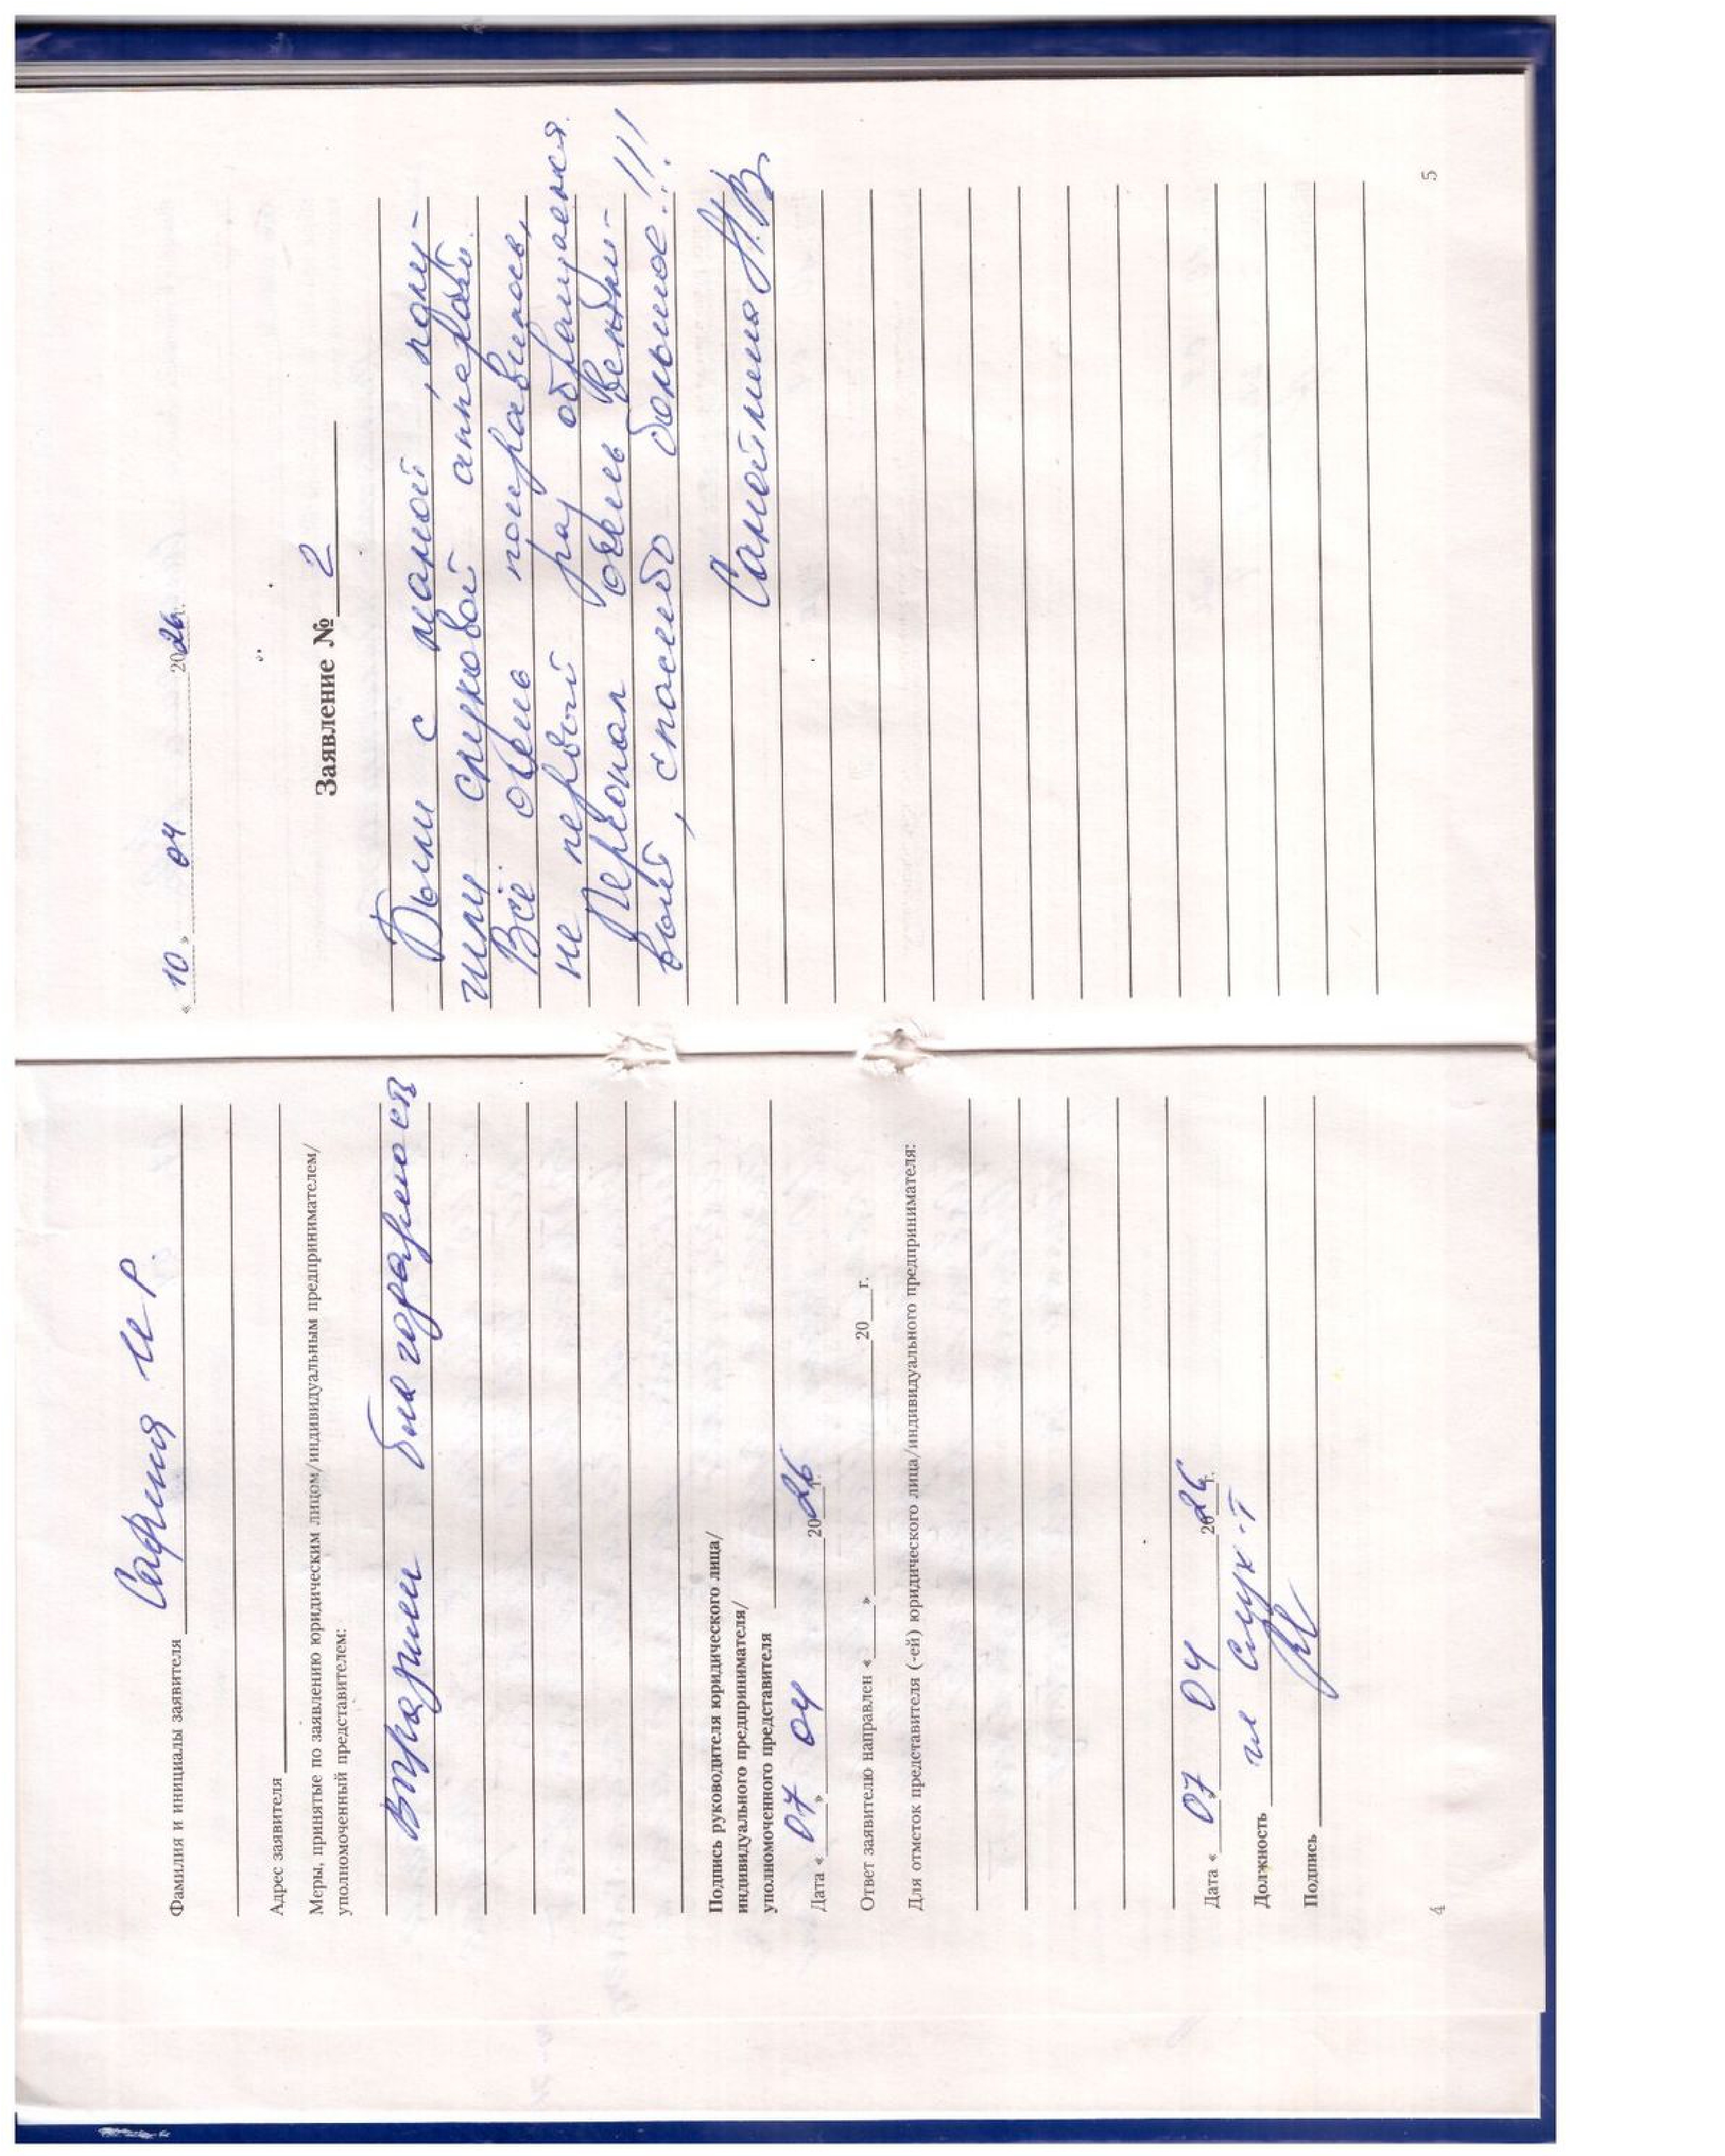 Фамилия и инициалы заявителя Сафина И Р.
Адрес заявителя
Меры, принятые по заявлению юридическим лицом/индивидуальным предпринимателем/
уполномоченный представителем:
Выразили благодарность
Подпись руководителя юридического лица/
индивидуального предпринимателя/
уполномоченного представителя
Дата « 07 » 04 2026 г.
Ответ заявителю направлен « » 20 г.
Для отметок представителя (-ей) юридического лица/индивидуального предпринимателя:
Дата « 07 04 2026 г.
Должность
Подпись
4
« 10 » 04 2026 г.
Заявление № 2
Были с мамой, полу-
чили слуховой аппарат.
Всё очень понравилось,
не первый раз обращаемся.
Персонал очень вежли-
вый, спасибо большое!!!
Самойлина Н.В.
5